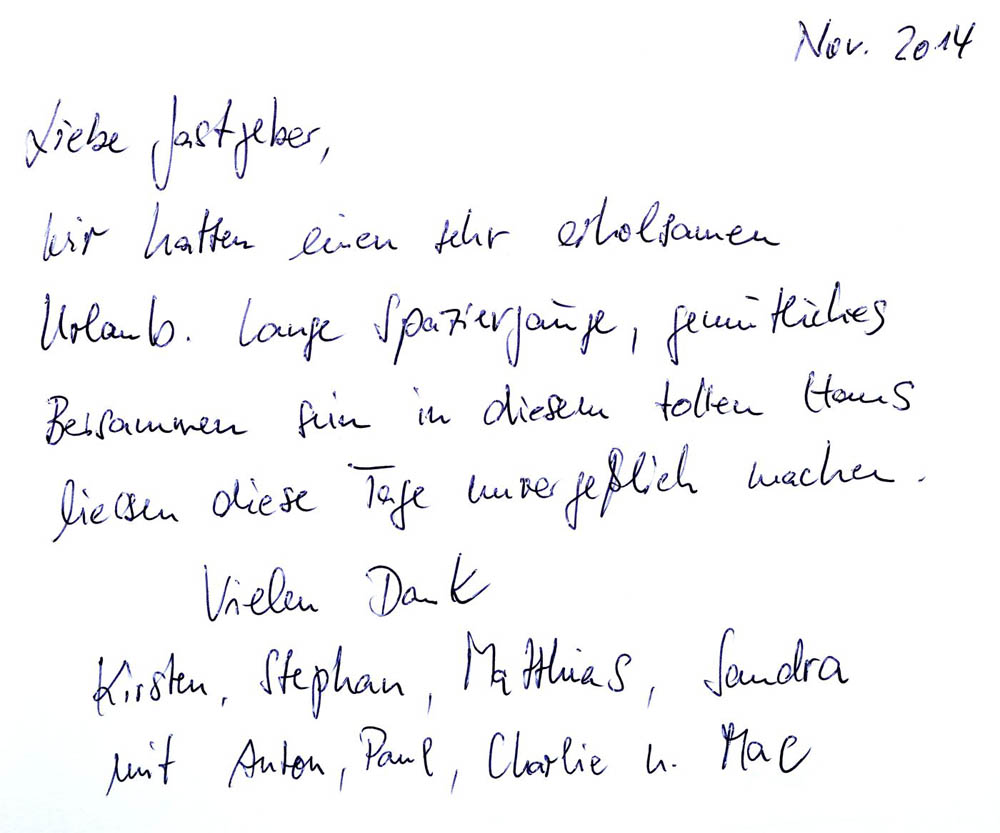 Nov. 2014
Liebe Gastgeber,
wir hatten einen sehr erholsamen
Urlaub. Lange Spaziergänge, gemütliches
Beisammen sein in diesem tollen Haus
liessen diese Tage unvergeßlich machen.
Vielen Dank
Kirsten, Stephan, Matthias, Sandra
mit Anton, Paul, Charlie u. Mac